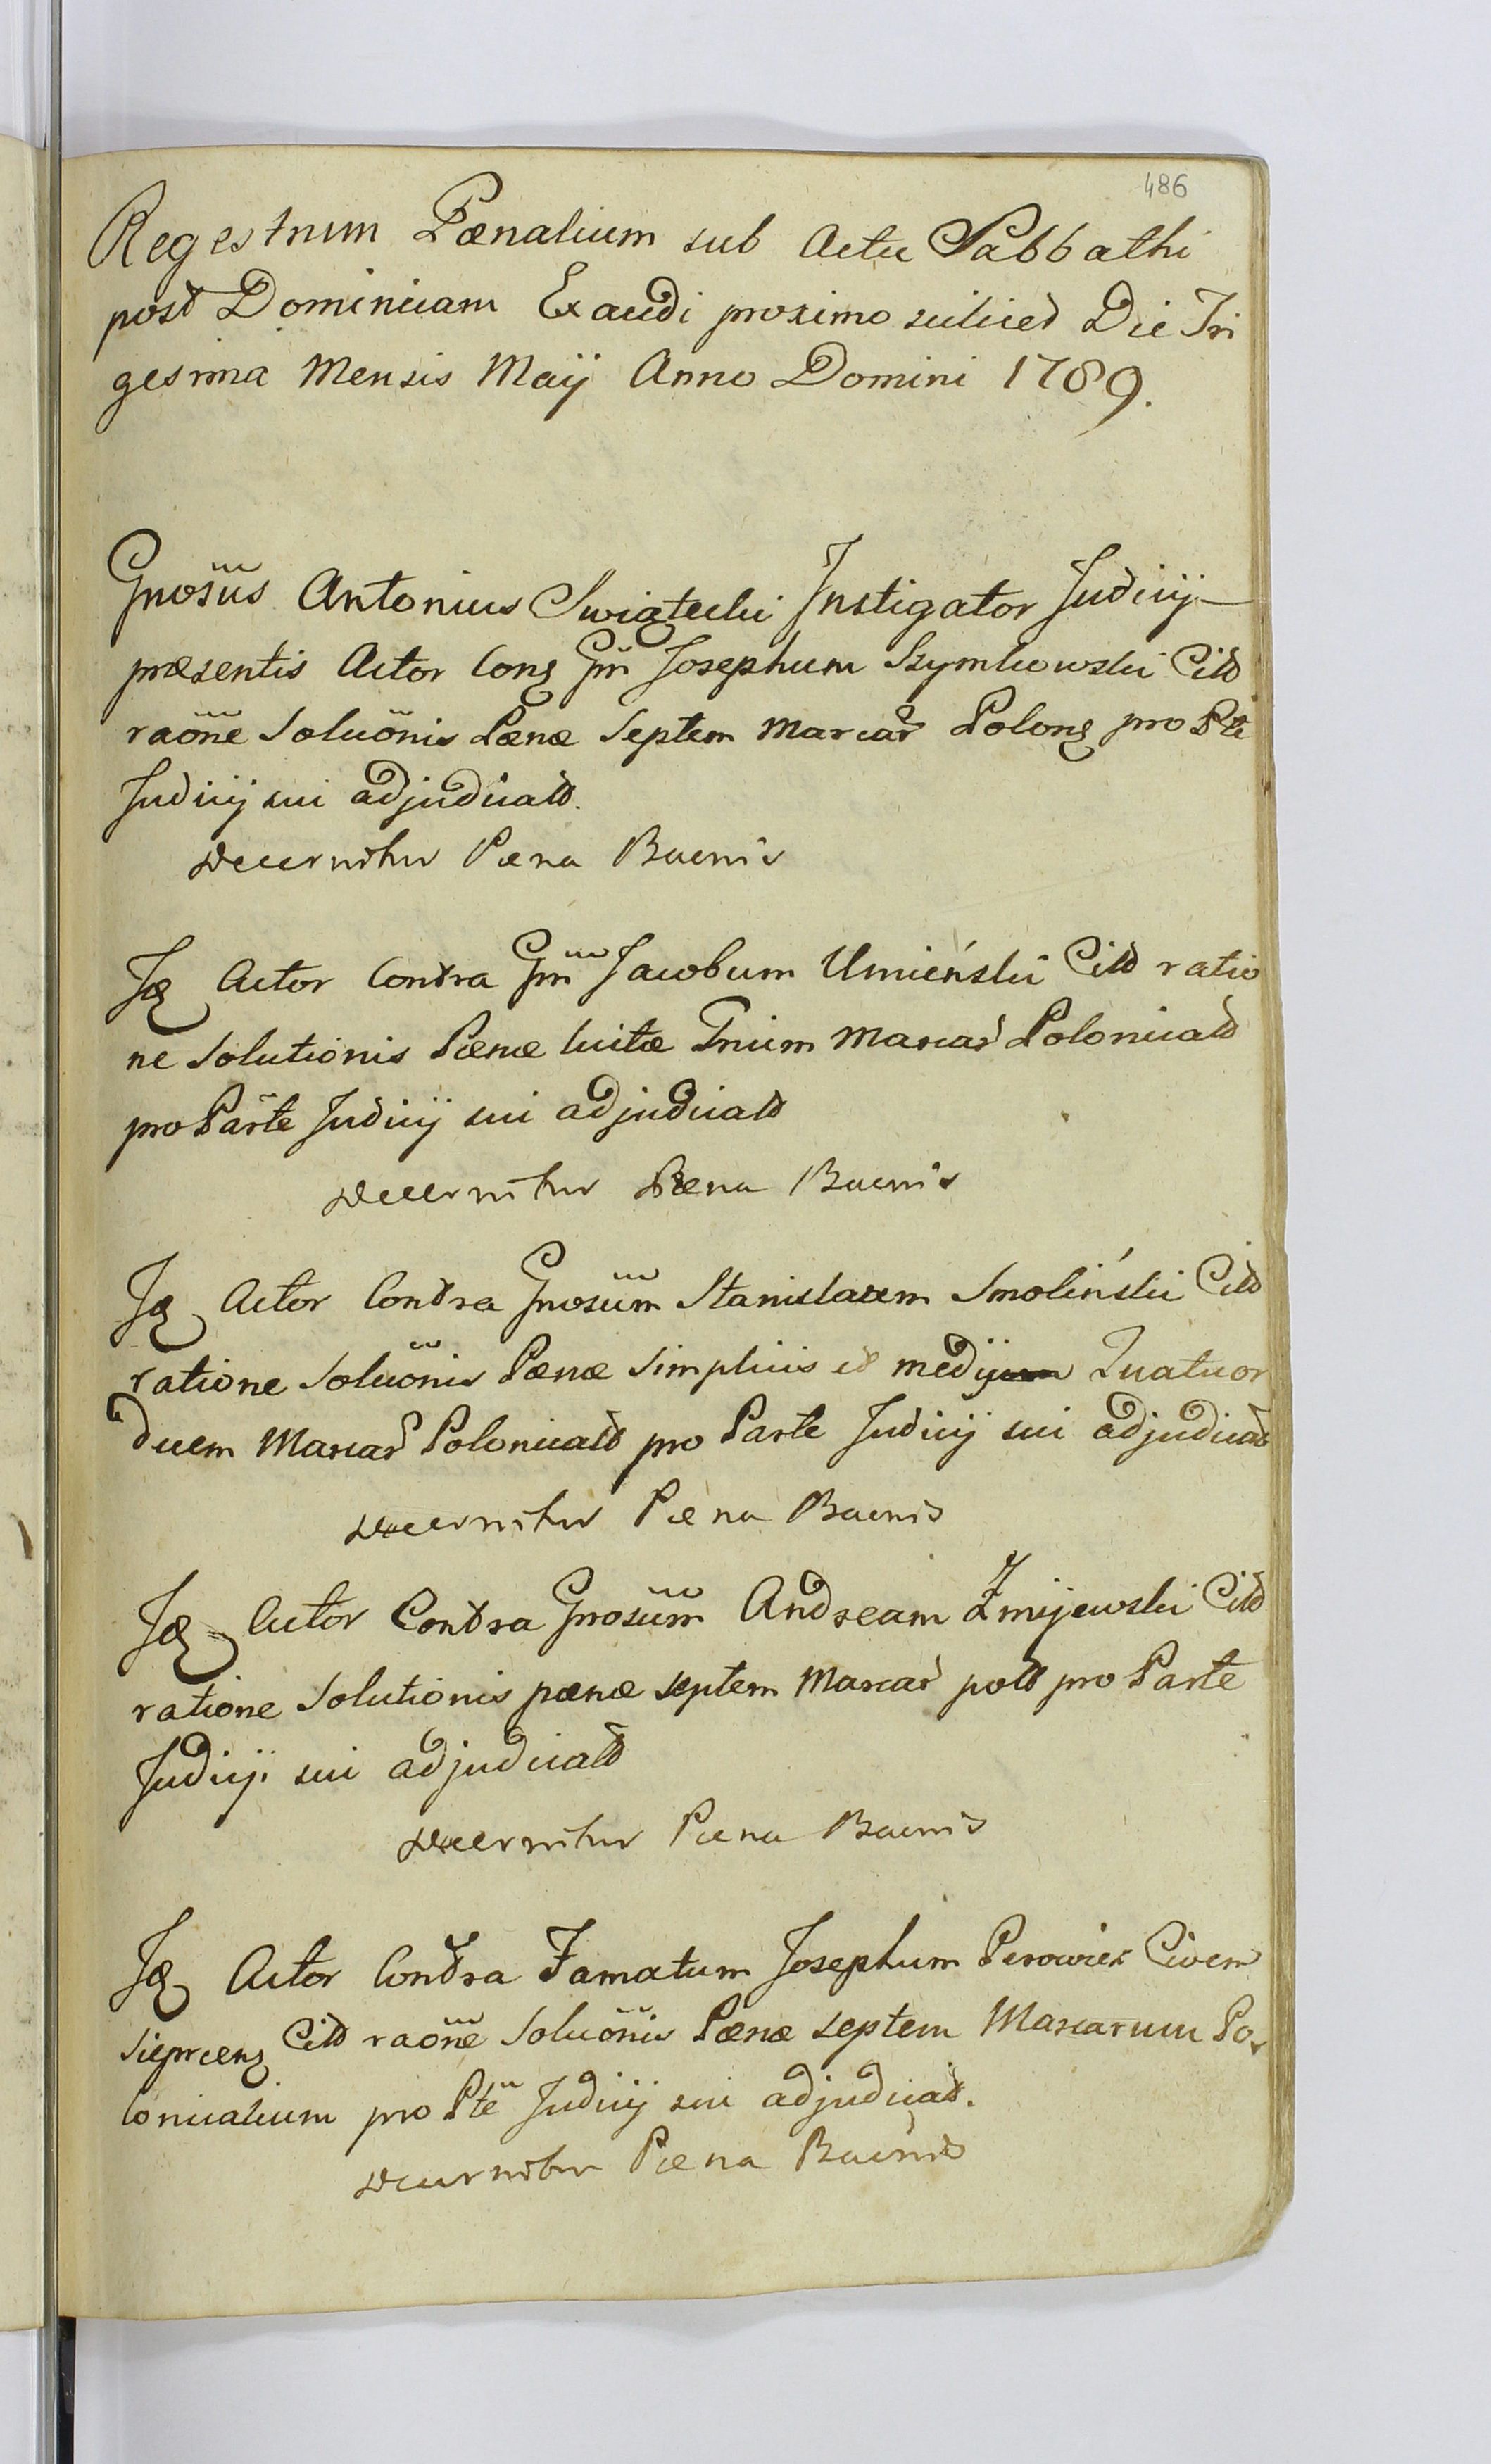 486
Regestrum Pœnalium sub Actu Sabbathi
post Dominicam Exaudi proximo scilicet Die Tri
gesima Mensis Maÿ Anno Domini 1789.
Gnosus Antonius Swiątecki Instigator Judicij
præsentis Actor Cong Gm Josephum Szymkowski Citt
raone Soluonis Pœnæ Septem Marcar Polong pro Pte
Judicij sui adjudicatt.
Decernitur Pœna Bacnis
Jđ Actor Contra Gm Jacobum Umieński Citt ratio
ne Solutionis Pœnæ luitæ Trium Marcar Polonicatt
pro Parte Judicij sui adjudicatt
Decernitur Pœna Bacnis
Jđ Actor Contra Gnosum Stanislaum Smoliński Citt
ratione Soluonis Pœnæ Simplicis et medij Quatuor
duem Marcar Polonicatt pro Parte Judicij sui adjudicatt
Decernitur Pœna Bacnis
Jđ Actor Contra Gnosum Andream Żmijewski Citt
ratione Solutionis pœnæ septem Marcar poll pro Parte
Judicij sui adjudicatt
Decernitur Pœna Bacnis
Jđ Actor Contra Famatum Josephum Civem
Sieprceng Citt raone Soluonis Pœnæ septem Marcarum Po
lonicalium pro Pte Judicij sui adjudicatt.
Decernitur Pœna Bacnis